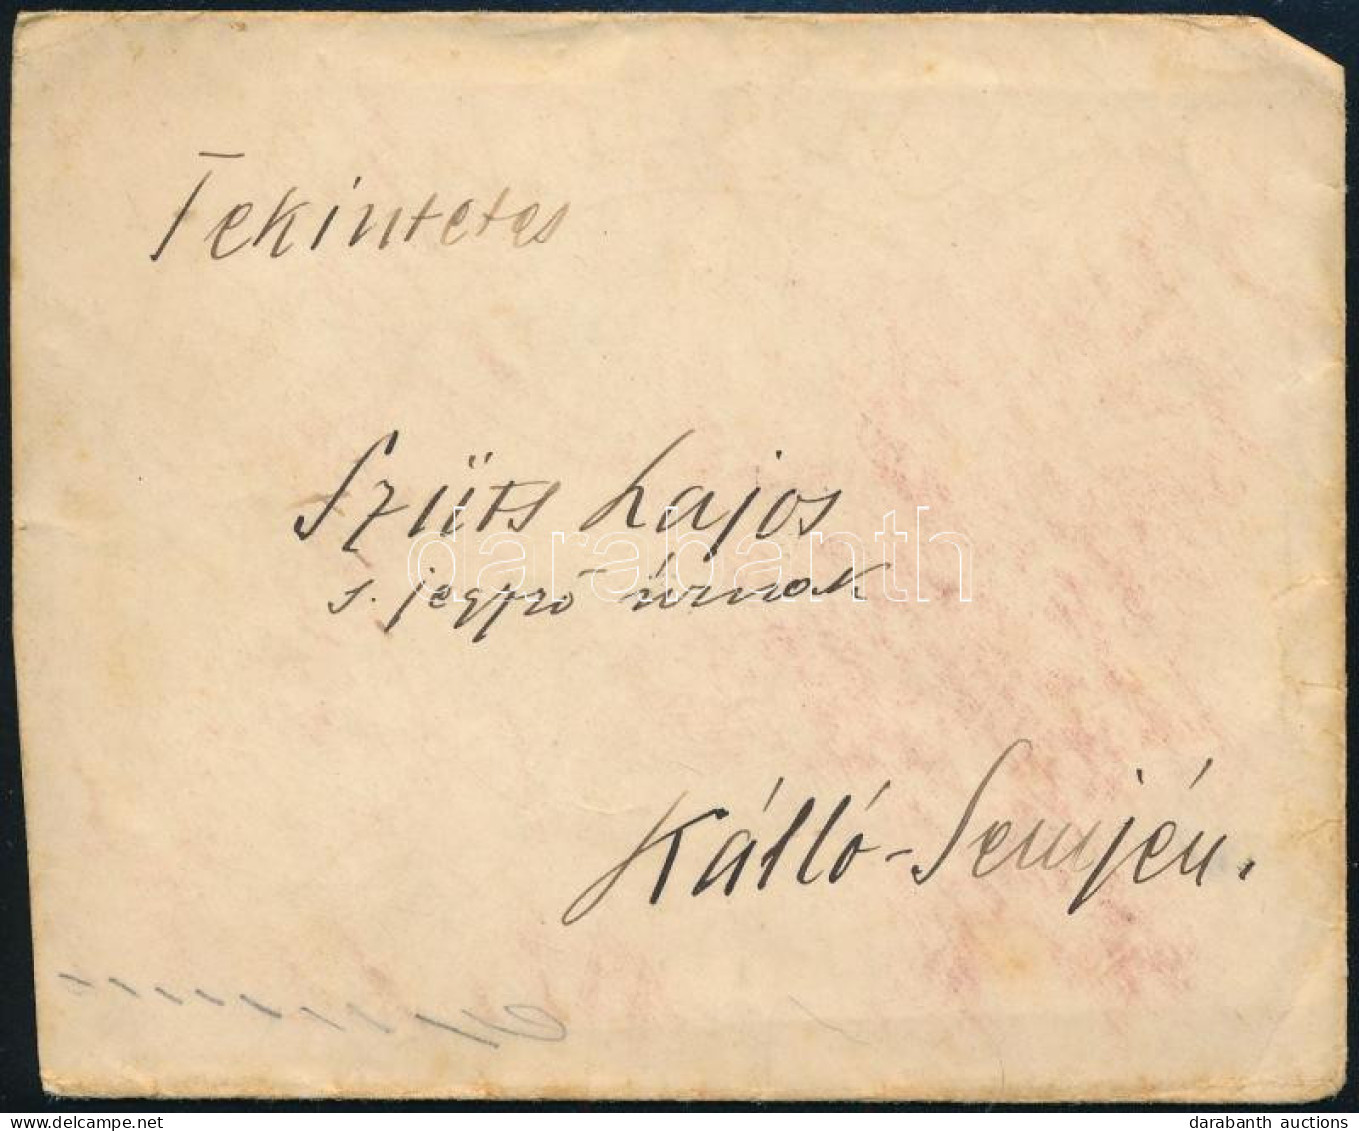 Tekintetes
Szüts Lajos
s. jegyző úrnak
Kálló-Semjén.
darabanth
darabanth auctions